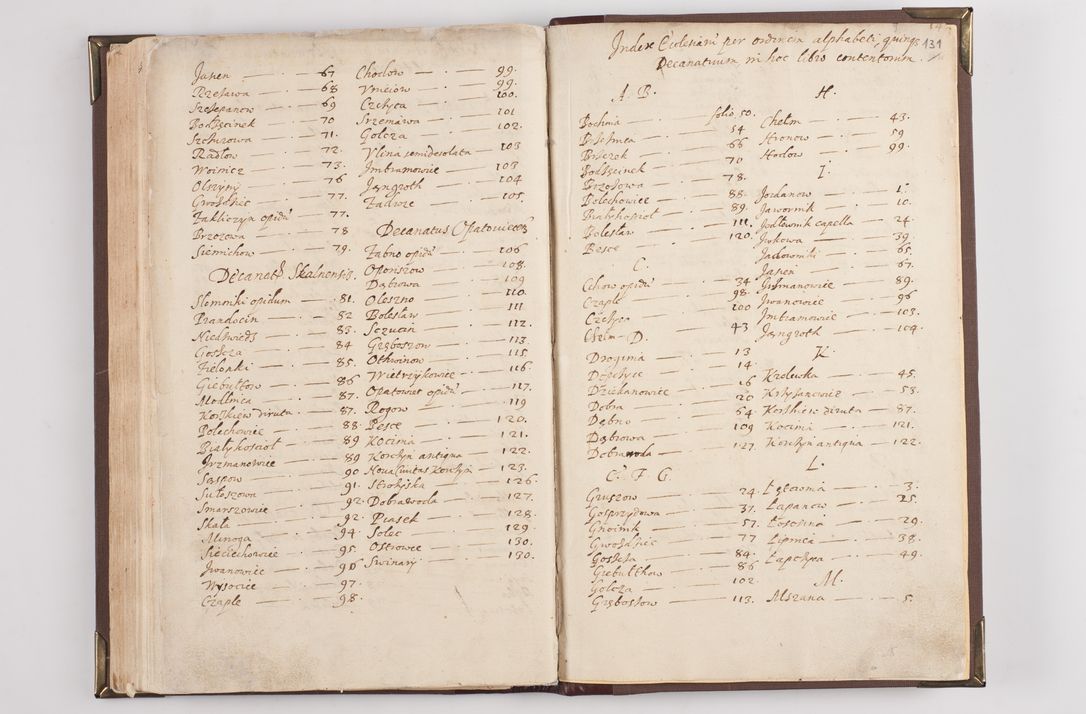 Jasien — 67
Rzezawa — 68
Szczepanow — 69
Bodzęcinek — 70
Szczurowa — 71.
Radłow — 72.
Woinicz — 73.
Olszyny — 76
Gwozdziec — 77.
Zakliczyn opidū 77.
Brzozowa — 78
Siemichow — 79.
Decanatq Skalnensis.
Slomniki opidum — 81.
Prandocin — 82
Niedzwiedz — 83.
Goszcza — 84
Zielonki — 85.
Giebułtow — 86
Modlnica — 87.
Korzkiew diruta — 87.
Bolechowic — 88
Białykosciół — 89
Jrzmanowic — 89
Sąspow — 90
Sułoszowa — 91.
Smarszowic — 92.
Skała — 92.
Minoga — 94
Sieciechowic — 95
Jwanowic — 96
Wysocic — 97.
Czaple — 98.
Chodow — 99.
Vniciów — 99.
Czchyca — 100.
Szremawa — 101
Golcza — 102.
Vlina semidesolata — 103
Jmbramowic — 103
Jangroth — 104
Zadroze — 105.
Decanatus Opatoviecen
Zabno opidū — 106
Oponszow — 108.
Dąbrowa — 109
Oleszno — 110.
Bolesław — 111
Sczucin — 112.
Gręboszow — 113.
Othwinow — 115.
Wietrzykowic — 116.
Opatowiec opidū — 117.
Rogow — 119
Pesce — 120.
Kocina — 121.
Korczyn antiqua — 122.
Noua Civitas Korczyn — 123.
Strozyska — 126.
Dobrawoda — 127.
Piasek — 128.
Solec — 129.
Ostrowce — 130.
Swinary — 130.
131
Index Ecclesiarū per ordinem alphabeti, quinq
Decanatuum in hoc libro contentorum.
A. B.
Bochnia — folio. 50.
Brzeznica — 54
Brzeczek — 66
Bodzęcinek — 70
Brzozowa — 78.
Bolechowic — 88.
Białykosciół — 89.
Bolesław — 111.
Besce — 120.
C.
Cichow opidū — 34
Czaple — 98.
Czchyca — 100
Chelm — 43
D.
Droginia — 13
Dobczyce — 14.
Dziekanowic — 16
Dobra — 20
Dąbno — 64.
Dąbrowa — 109
Dobrawoda — 127.
E. F. G.
Gruszow — 24.
Gosprzydowa — 37.
Gnoinik — 57.
Gwozdziec — 77
Goszcza — 84.
Giebułthow — 86
Golcza — 102.
Gręboszow — 113.
H.
Chelm — 43.
Hronow — 59
Hodow — 99.
I.
Jordanow — 1.
Jawornik — 10.
Jodłownik capella — 24.
Jurkowa — 39.
Jadowniki — 65.
Jasien — 67.
Jrzmanowic — 89.
Jwanowic — 96
Jmbramowic — 103.
Jangroth — 104.
K.
Krolewka — 45.
Krzyzanowic — 53.
Korzkiew diruta — 87.
Kocina — 121.
Korczyn antiqua — 122.
L.
Łętownia — 3.
Łapanow — 25.
Łososina — 29.
Lipnica — 38.
Łapczyca — 49.
M.
Mszana — 5.